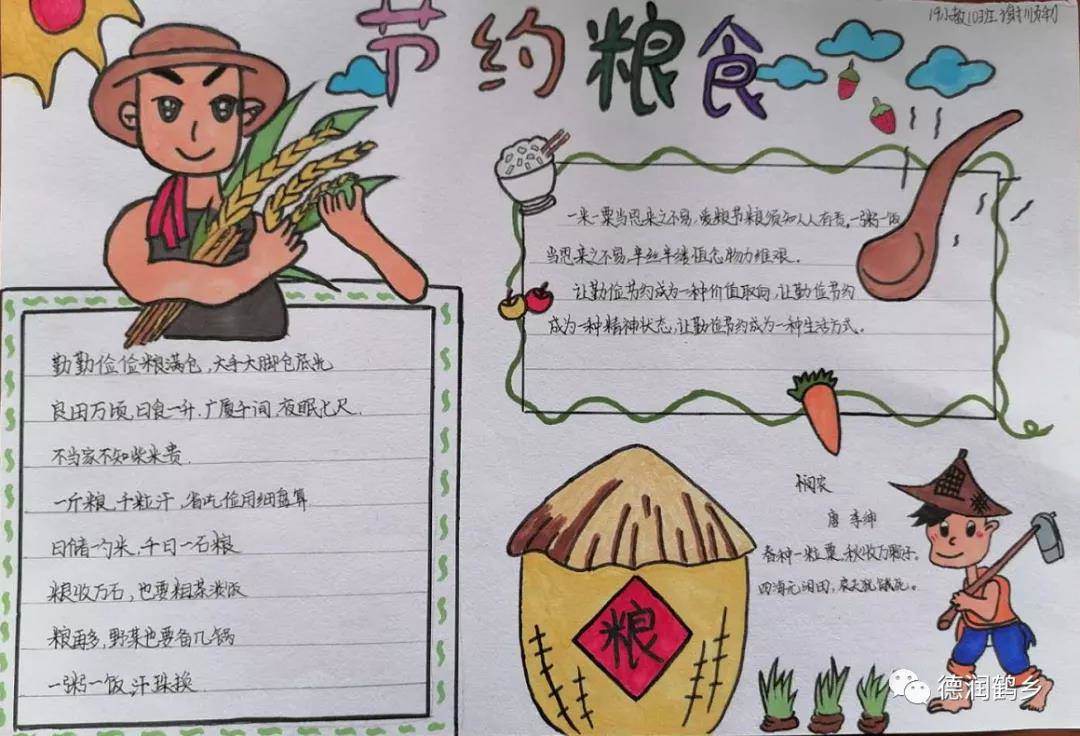 节约粮食
19小教10班
勤勤俭俭粮满仓,大手大脚仓底光
良田万顷,日食一升.广厦千间,夜眠七尺.
不当家不知柴米贵.
一斤粮,千粒汗,省吃俭用细盘算
日储一勺米,千日一石粮
粮收万石,也要粗茶淡饭
粮再多,野菜也要备几锅
一粥一饭,汗珠换.
一米一粟当思来之不易,爱粮节粮须知人人有责。一粥一饭
当思来之不易,半丝半缕恒念物力维艰。
让勤俭节约成为一种价值取向,让勤俭节约
成为一种精神状态,让勤俭节约成为一种生活方式。
粮
悯农
唐 李绅
春种一粒粟,秋收万颗子。
四海无闲田,农夫犹饿死。
德润鹤乡